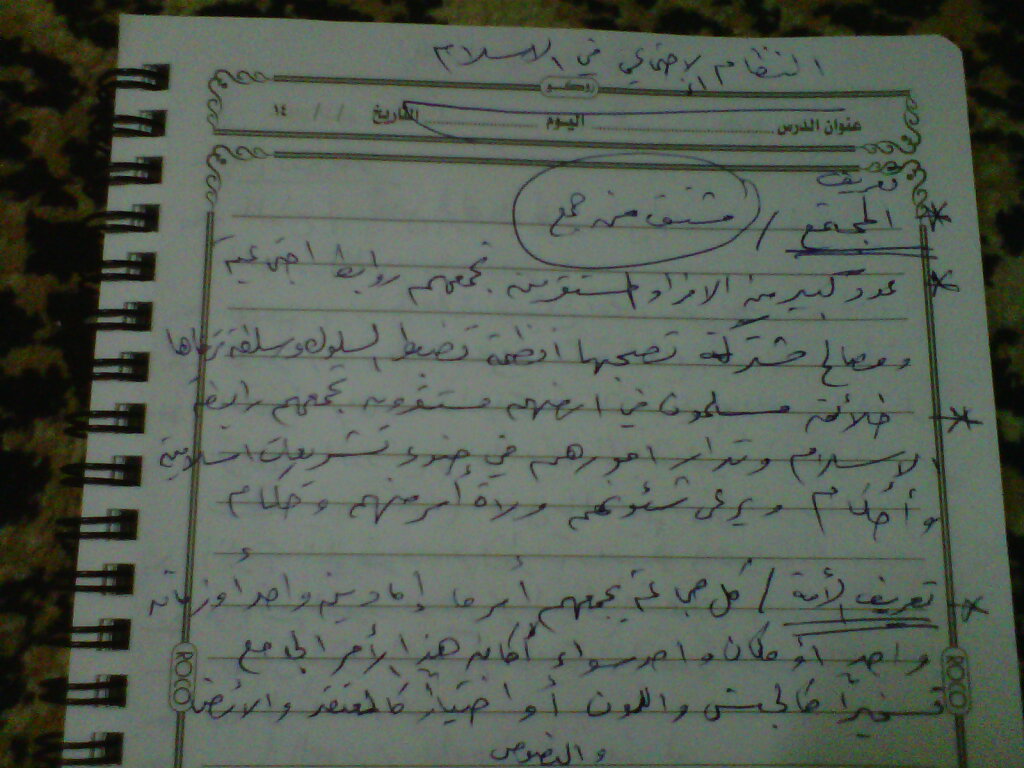 النظام الإجتماعي في الاسلام
روكو
عنوان الدرس اليوم التاريخ / / ١٤
تعريف
* المجتمع / مشتق من جمع
* عدد كبير من الافراد المستقرين تجمعهم روابط اجتماعية
ومصالح مشتركة تصحبها انظمة تضبط السلوك وسلطة ترعاها
* خلائق مسلمون في ارضهم مستقرون تجمعهم رابطة
الاسلام وتدار امورهم في ضوء تشريعات اسلامية
وأحكام ويرعى شئونهم ولاة أمر منهم وحكام
* تعريف الأمة / كل جماعة يجمعهم أمر ما إما دين واحد أو زمان
واحد أو مكان واحد سواء أكان هذا الأمر الجامع
تسخيراً كالجنس واللون أو اختياراً كالمعتقد والارض
والنصوص
ROCO
ROCO